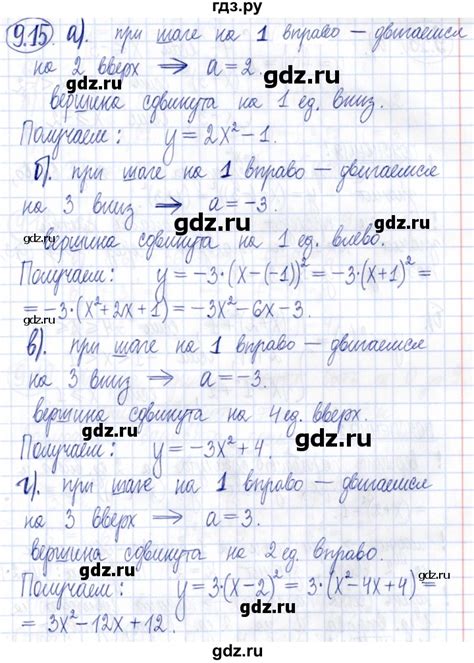 гдз.ру
9.15 а). при шаге на 1 вправо – двигаемся
на 2 вверх ⇒ a = 2.
gdz.ru
вершина сдвинута на 1 ед. вниз.
Получаем: y = 2x² – 1.
gdz.ru
б). при шаге на 1 вправо – двигаемся
на 3 вниз ⇒ a = –3.
gdz.ru
gdz.ru
вершина сдвинута на 1 ед. влево.
Получаем: y = –3·(x–(–1))² = –3·(x+1)² =
= –3·(x²+2x+1) = –3x²–6x–3.
gdz.ru
в). при шаге на 1 вправо – двигаемся
на 3 вниз ⇒ a = –3.
gdz.ru
вершина сдвинута на 4 ед. вверх.
gdz.ru
Получаем: y = –3x² + 4.
г). при шаге на 1 вправо – двигаемся
gdz.ru
на 3 вверх ⇒ a = 3.
gdz.ru
вершина сдвинута на 2 ед. вправо.
Получаем: y = 3·(x–2)² = 3·(x²–4x+4) =
gdz.ru
= 3x²–12x+12.
gdz.ru
гдз.ру